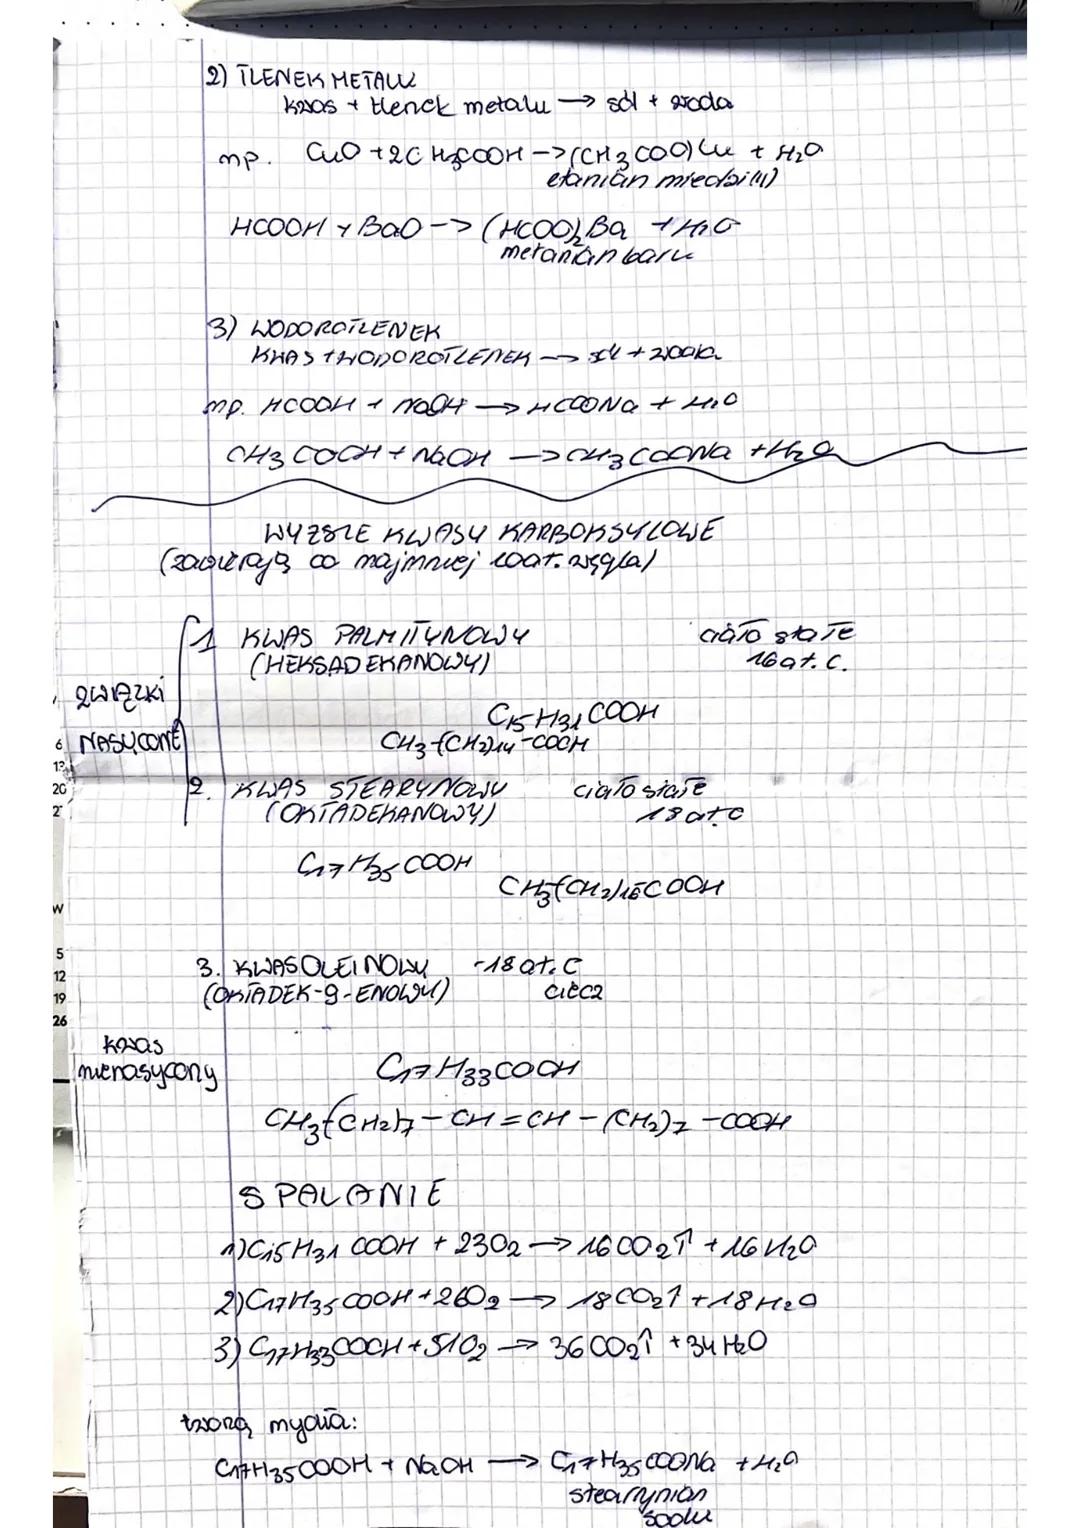 2) TLENEK METALU
kwas + tlenek metalu → sól + woda
np. CuO + 2CH3COOH → (CH3COO) Cu + H2O
etanian miedzi(II)
HCOOH + BaO → (HCOO)2Ba + H2O
metanian baru
3) WODOROTLENEK
KWAS + WODOROTLENEK → sól + woda
np. HCOOH + NaOH → HCOONa + H2O
CH3COOH + NaOH → CH3COONa + H2O
WYŻSZE KWASY KARBOKSYLOWE
(zawierają co najmniej 10at. węgla)
1 KWAS PALMITYNOWY ciało stałe
(HEKSADEKANOWY) 16 at. C.
ZWIĄZKI
C15H31COOH
NASYCONE
CH3-(CH2)14-COOH
2. KWAS STEARYNOWY ciało stałe
(OKTADEKANOWY) 18 at. C
C17H35COOH
CH3-(CH2)16COOH
3. KWAS OLEINOWY -18 at. C
(OKTADEK-9-ENOWY) ciecz
kwas
nienasycony
C17H33COOH
CH3-(CH2)7-CH=CH-(CH2)7-COOH
SPALANIE
1) C15H31COOH + 23O2 → 16CO2↑ + 16H2O
2) C17H35COOH + 26O2 → 18CO2↑ + 18H2O
3) C17H33COOH + 51O2 → 36CO2↑ + 34H2O
tworzą mydła:
C17H35COOH + NaOH → C17H35COONa + H2O
stearynian
sodu
6
13
20
27
W
5
12
19
26